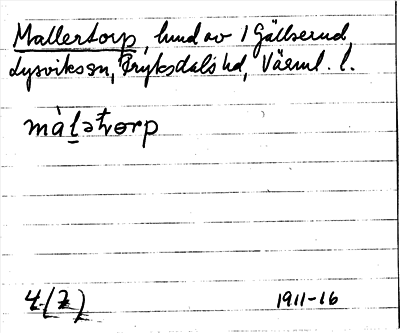 Mallertorp, lund av 1 Gällserud
Lysviks sn, Fryksdals hd, Värml. l.
màḻətvɵrp
4 (7)
1911-16